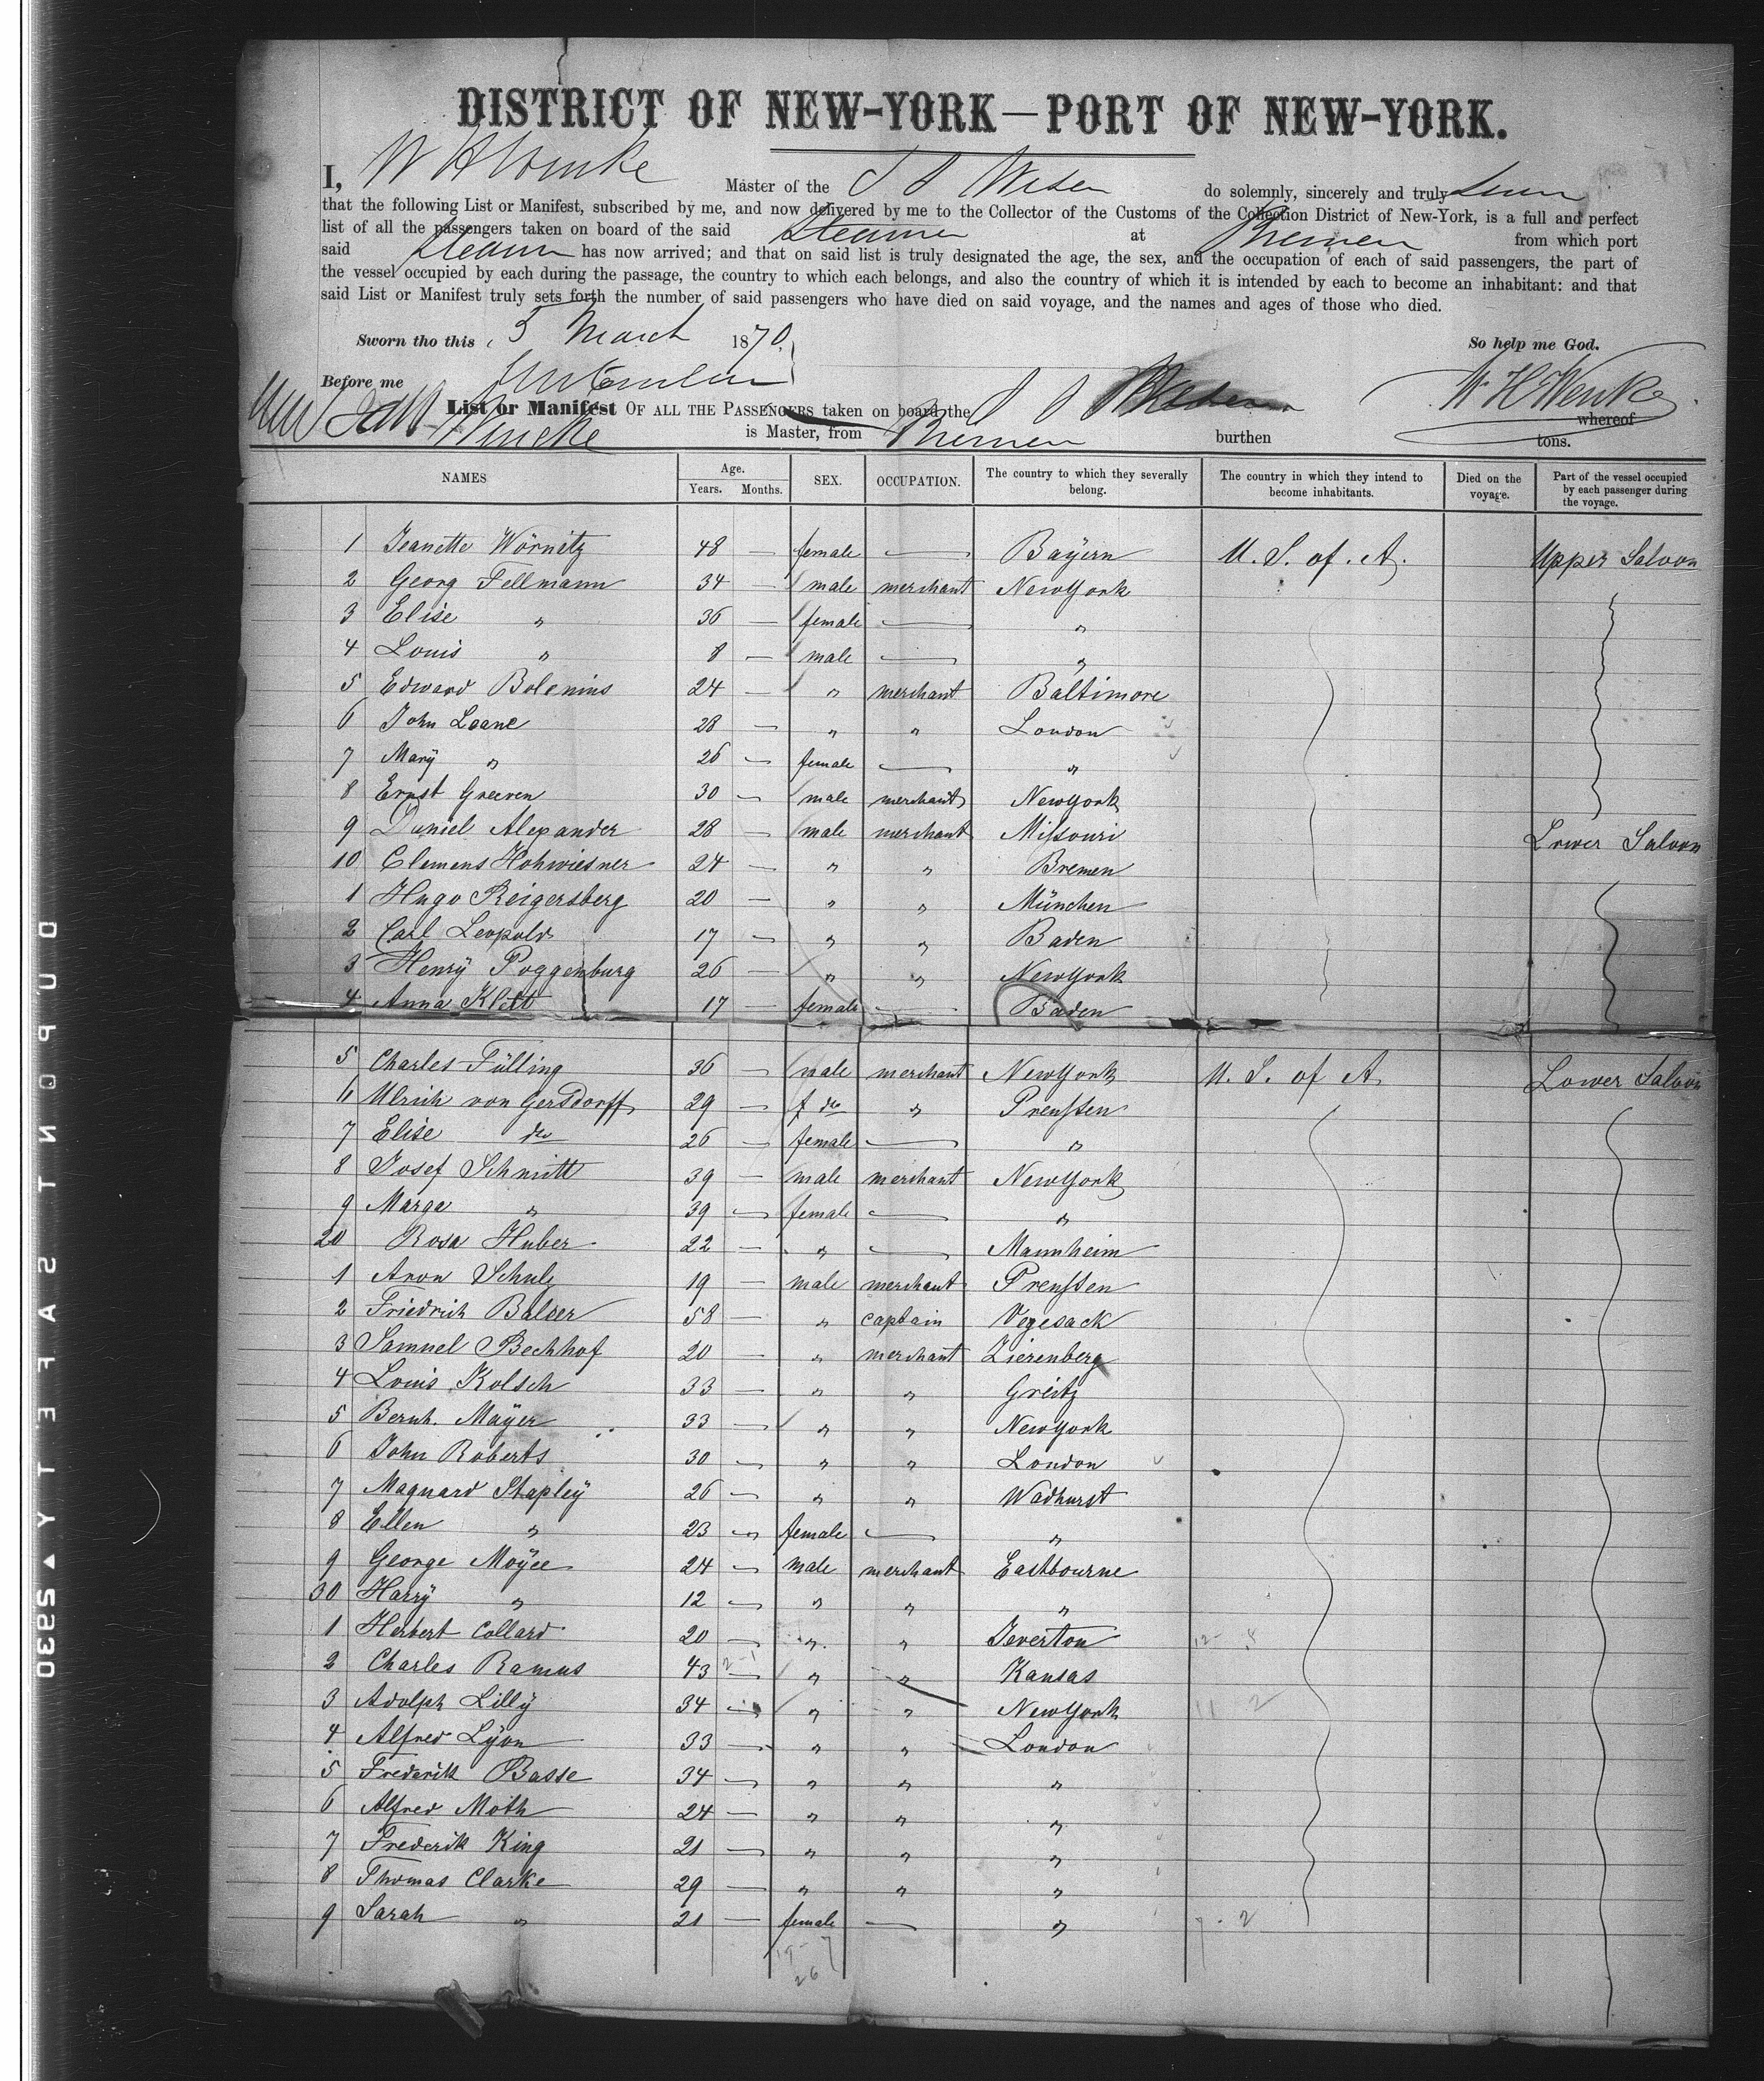 DISTRICT OF NEW-YORK—PORT OF NEW-YORK.
I, W H Wenke Master of the S S Weser do solemnly, sincerely and truly swear
that the following List or Manifest, subscribed by me, and now delivered by me to the Collector of the Customs of the Collection District of New-York, is a full and perfect
list of all the passengers taken on board of the said Steamer at Bremen from which port
said Steamer has now arrived; and that on said list is truly designated the age, the sex, and the occupation of each of said passengers, the part of
the vessel occupied by each during the passage, the country to which each belongs, and also the country of which it is intended by each to become an inhabitant: and that
said List or Manifest truly sets forth the number of said passengers who have died on said voyage, and the names and ages of those who died.
Sworn tho this 5 March 1870. So help me God.
Before me W. H. Wenke
List or Manifest OF ALL THE PASSENGERS taken on board the S S Weser whereof
Wencke is Master, from Bremen burthen tons.
NAMES Age. Years. Months. SEX. OCCUPATION. The country to which they severally belong. The country in which they intend to become inhabitants. Died on the voyage. Part of the vessel occupied by each passenger during the voyage.
1 Jeanette Wörnitz 48 — female — Bayern U. S. of. A. Upper Saloon
2 Georg Fellmann 34 — male merchant NewYork
3 Elise " 36 — female — "
4 Louis " 8 — male — "
5 Edward Bolenius 24 — " merchant Baltimore
6 John Loane 28 — " " London
7 Mary " 26 — female — "
8 Ernst Greeven 30 — male merchant NewYork
9 Daniel Alexander 28 — male merchant Missouri Lower Saloon
10 Clemens Hohwiesner 24 — " " Bremen
1 Hugo Reigersberg 20 — " " München
2 Carl Leopold 17 — " " Baden
3 Henry Poggenburg 26 — " " NewYork
4 Anna Klett 17 — female — Baden
5 Charles Fülling 36 — male merchant NewYork U. S. of A. Lower Saloon
6 Ulrich von Gersdorff 29 — do " Preussen
7 Elise do 26 — female — "
8 Josef Schmitt 39 — male merchant NewYork
9 Marga " 39 — female — "
20 Rosa Huber 22 — " — Mannheim
1 Aron Schulz 19 — male merchant Preussen
2 Friedrich Balder 58 — " captain Vegesack
3 Samuel Bechhof 20 — " merchant Zierenberg
4 Louis Kolsch 33 — " " Greitz
5 Bernh. Mayer 33 — " " NewYork
6 John Roberts 30 — " " London
7 Magnard Stapley 26 — " " Wadhurst
8 Ellen " 23 — female — "
9 George Moyee 24 — male merchant Eastbourne
30 Harry " 12 — " " "
1 Herbert Collard 20 — " " Teverton
2 Charles Ramus 43 — " " Kansas
3 Adolph Lilly 34 — " " NewYork 11 2
4 Alfred Lyon 33 — " " London
5 Frederik Basse 34 — " " "
6 Alfred Moth 24 — " " "
7 Frederik King 21 — " " "
8 Thomas Clarke 29 — " " "
9 Sarah " 21 — female — " 7 - 2
19 - 7
26
DUPONT SAFETY ▲ S230